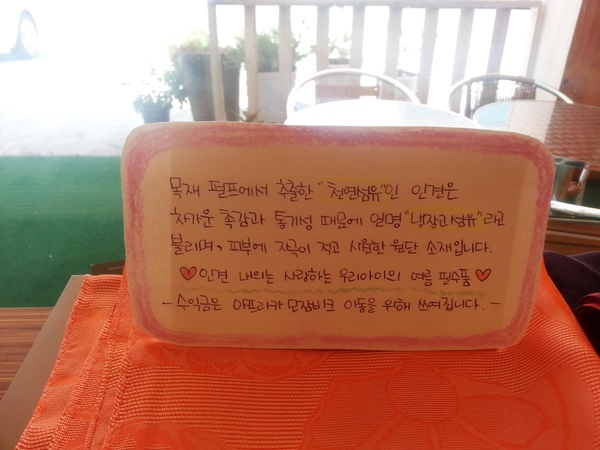 목재 펄프에서 추출한 "천연섬유"인 인견은
차가운 촉감과 통기성 때문에 일명 "냉장고섬유"라고
불리며, 피부에 자극이 적고 시원한 원단 소재입니다.
♥인견 내의는 사랑하는 우리아이의 여름 필수품♥
- 수익금은 아프리카 모잠비크 아동을 위해 쓰여집니다. -